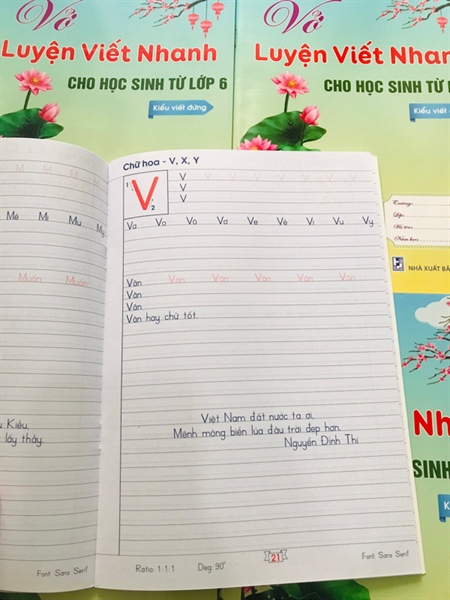 Vở
Luyện Viết Nhanh
CHO HỌC SINH TỪ LỚP 6
Kiểu viết đứng
Vở
Luyện Viết Nhan
CHO HỌC SINH TỪ L
Kiểu viết
Chữ hoa - V, X, Y
1 V 2
V
V
V
M M M M
Mê Mi Mu My
Va Vo Vô Vơ Ve Vê Vi Vu Vy
Muôn Muôn
Văn Văn Văn Văn Văn Văn
Văn
Văn
Văn hay chữ tốt.
Việt Nam đất nước ta ơi,
Mênh mông biển lúa đâu trời đẹp hơn.
Nguyễn Đình Thi
Kiều,
lấy thầy.
Font: Sans Serif
Ratio: 1:1:1
Deg: 90°
21
Font: Sans Serif
Trường:
Lớp:
Họ tên:
Năm học:
NHÀ XUẤT BẢ
Nh
SINH
Ki